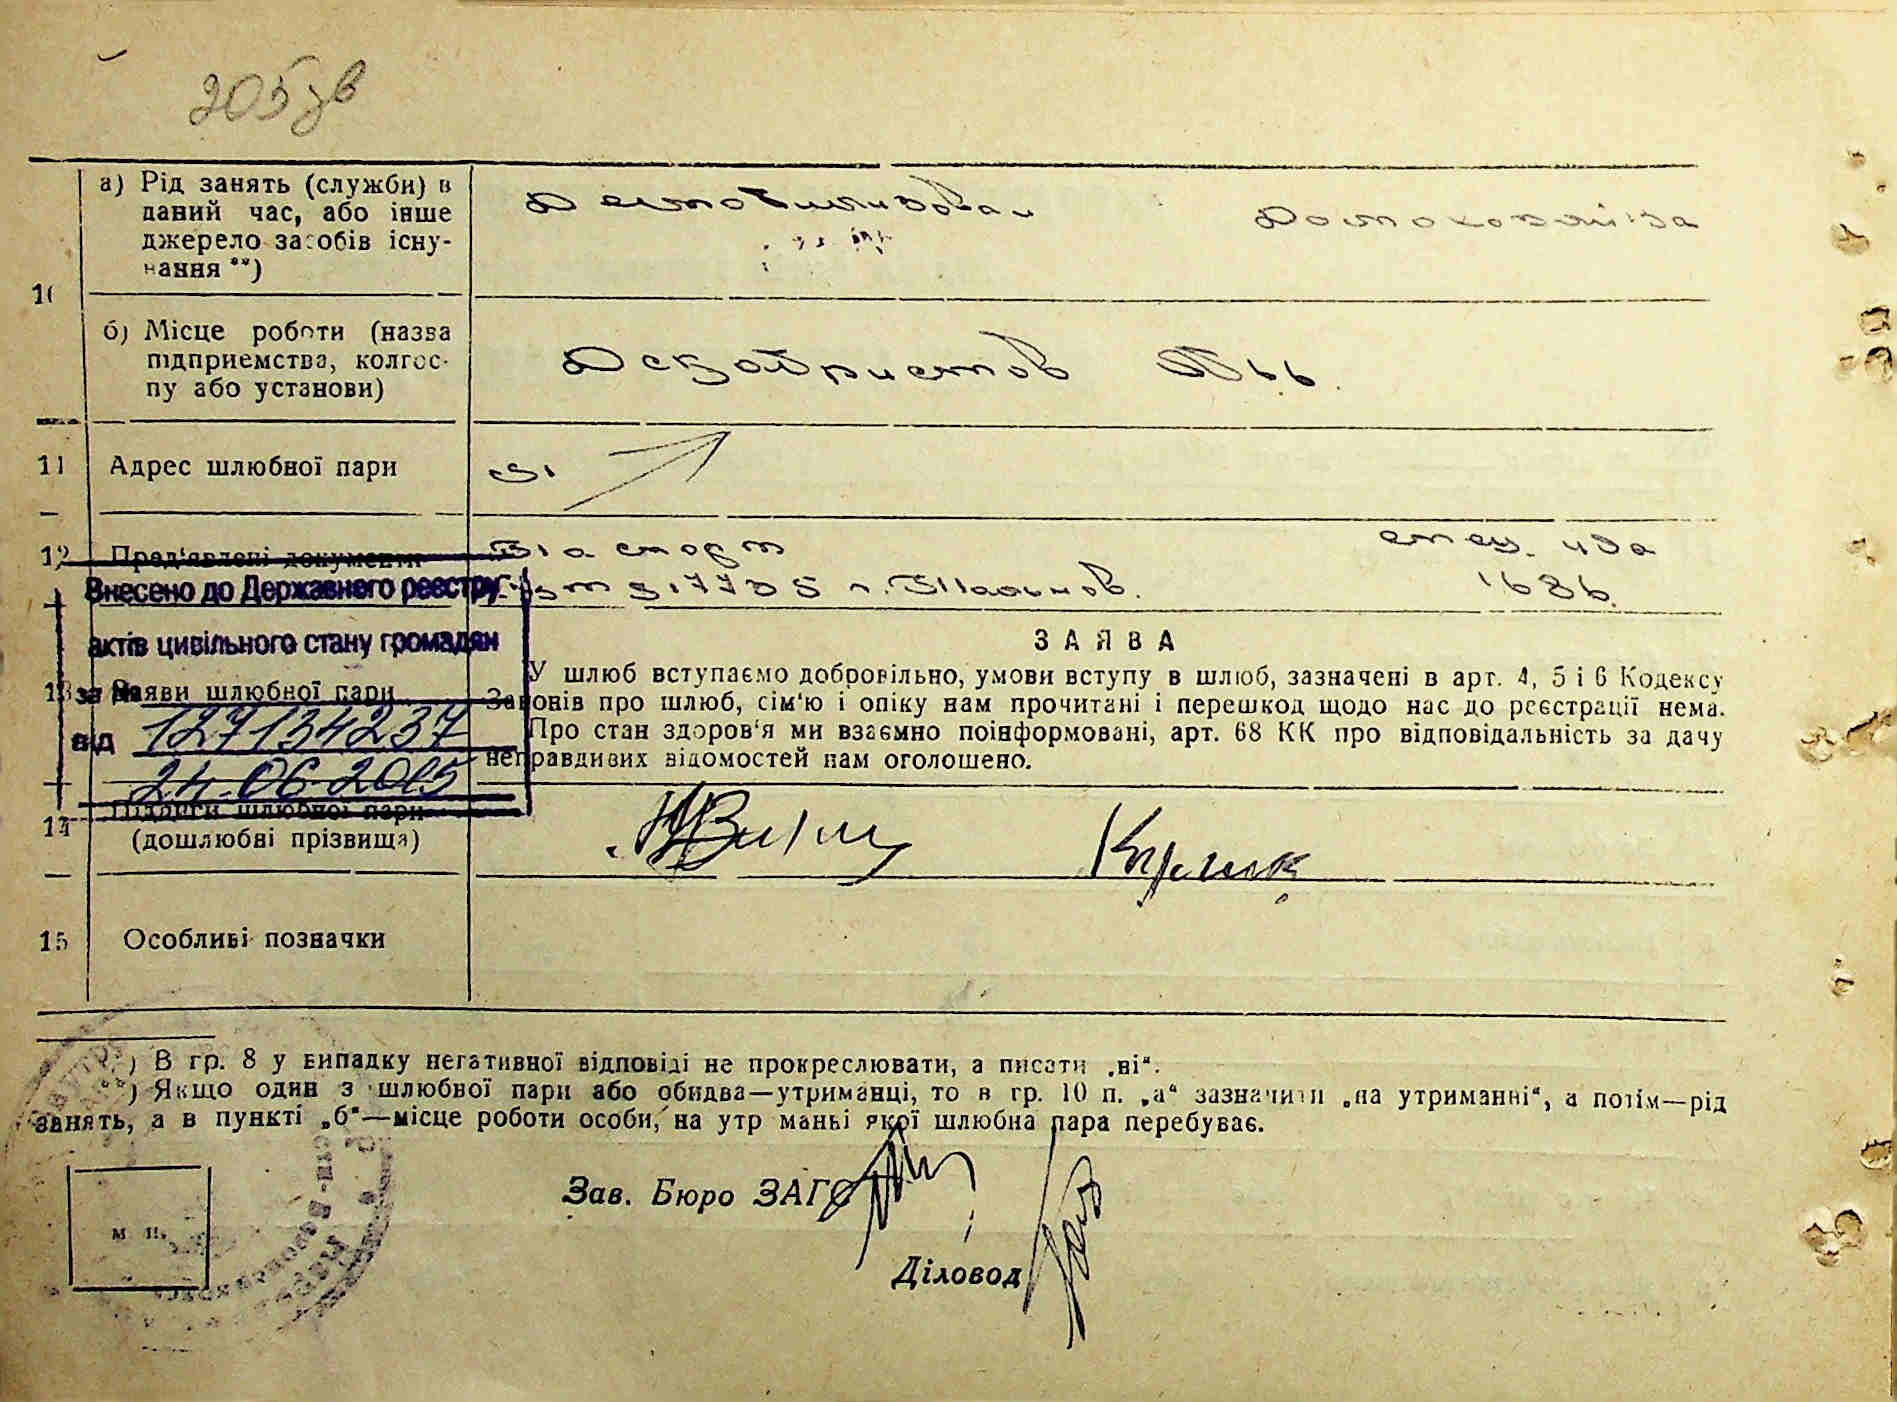 205 зв
10
а) Рід занять (служби) в
даний час, або інше
джерело засобів існу-
вання **)
Демобилизован
Домохозяйка
б) Місце роботи (назва
підприємства, колгос-
пу або установи)
Декабристов
11 Адрес шлюбної пари
12 Пред'явлені документи
Паспорт
Внесено до Державного реєстру
актів цивільного стану громадян
за №
від 127134237
24.06.2015
З А Я В А
13 Заяви шлюбної пари
У шлюб вступаємо добровільно, умови вступу в шлюб, зазначені в арт. 4, 5 і 6 Кодексу
Законів про шлюб, сім'ю і опіку нам прочитані і перешкод щодо нас до реєстрації нема.
Про стан здоров'я ми взаємно поінформовані, арт. 68 КК про відповідальність за дачу
неправдивих відомостей нам оголошено.
14 Підписи шлюбної пари
(дошлюбні прізвища)
15 Особливі позначки
*) В гр. 8 у випадку негативної відповіді не прокреслювати, а писати „ні“.
**) Якщо один з шлюбної пари або обидва—утриманці, то в гр. 10 п. „а“ зазначити „на утриманні“, а потім—рід
занять, а в пункті „б“—місце роботи особи, на утриманні якої шлюбна пара перебуває.
м. п.
Зав. Бюро ЗАГС
Діловод